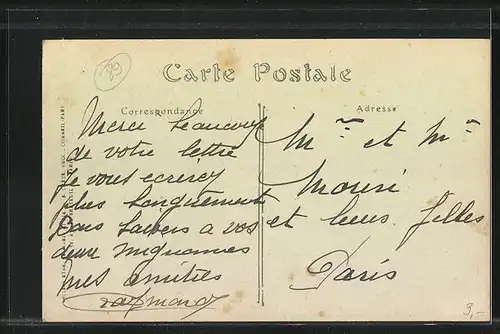 89
Carte Postale
Correspondance
Adresse
Merci beaucoup
de votre lettre
Je vous ecrerez
plus longuement
Bons baisers a vos
deux mignonnes
mes amitiés
Raymond
Mr et Mme
et leurs filles
Paris
9,-